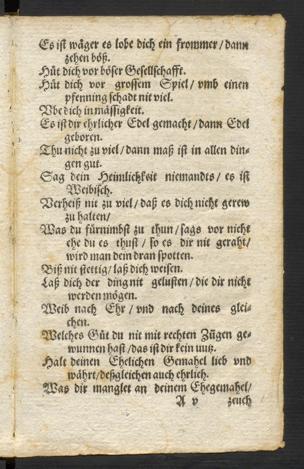 Es ist wäger es lobe dich ein frommer / dann
zehen böß.
Hüt dich vor böser Gesellschafft.
Hüt dich vor grossem Spiel / vmb einen
pfenning schadt nit viel.
Vbe dich in mässigkeit.
Es ist dir ehrlicher Edel gemacht / dann Edel
geboren.
Thu nicht zu viel / dann maß ist in allen din-
gen gut.
Sag dein Heimlichkeit niemandts / es ist
Weibisch.
Verheiß nit zu viel / daß es dich nicht gerew
zu halten /
Was du fürnimbst zu thun / sags vor nicht
ehe du es thust / so es dir nit geraht /
wird man dein dran spotten.
Biß nit stettig / laß dich weisen.
Laß dich der ding nit gelusten / die dir nicht
werden mögen.
Weib nach Ehr / vnd nach deines glei-
chen.
Welches Güt du nit mit rechten Zügen ge-
wunnen hast / das ist dir kein nutz.
Halt deinen Ehelichen Gemahel lieb vnd
währt / deßgleichen auch ehrlich.
Was dir manglet an deinem Ehegemahel /
A v zeuch